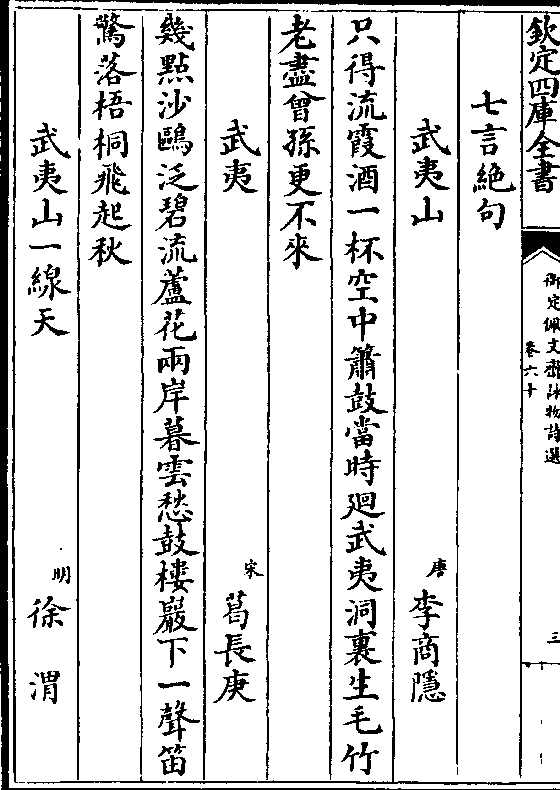 欽定四庫全書
御定佩文齋詠物詩選
卷六十
三
七言絕句
武夷山
唐 李商隱
只得流霞酒一杯空中簫鼓當時廻武夷洞裏生毛竹
老盡曾孫更不來
武夷
宋 葛長庚
幾點沙鷗泛碧流蘆花兩岸暮雲愁鼓樓巖下一聲笛
驚落梧桐飛起秋
武夷山一線天
明 徐渭